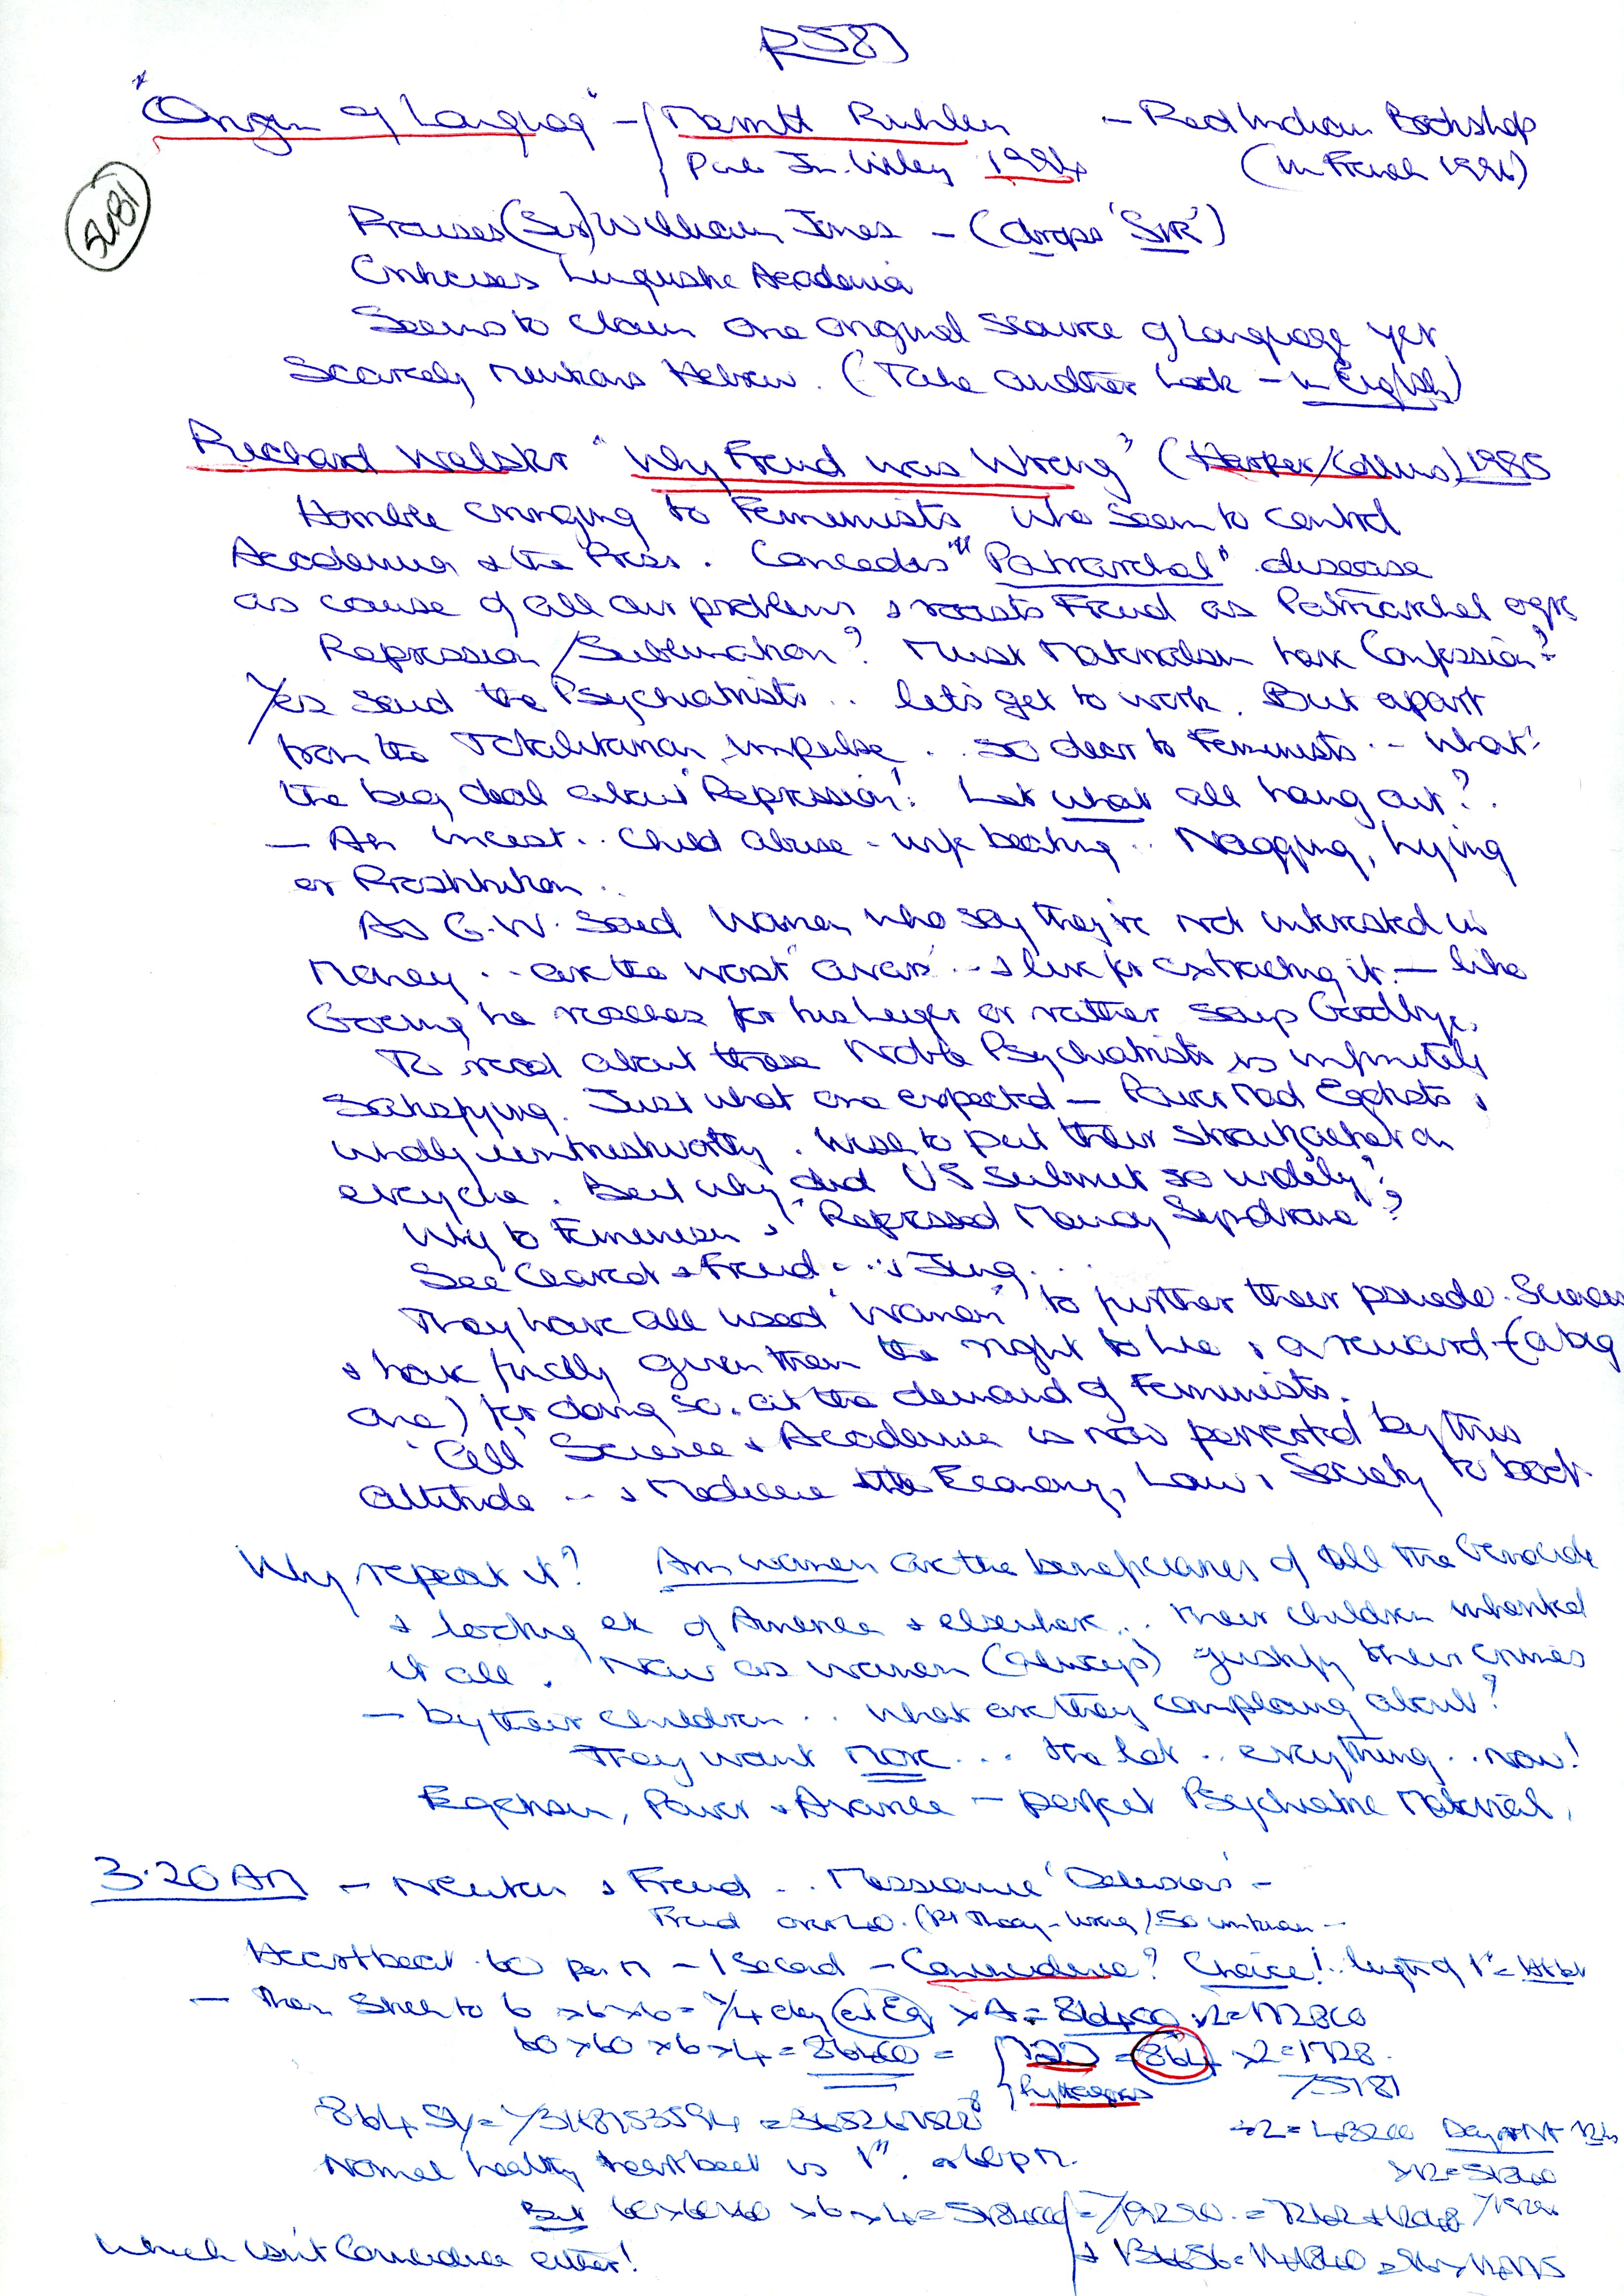 P581
"Origin of Language" - Merritt Ruhlen - Red Indian Bookshop
Pub Jn. Wiley 1994 (in French 1996)
5181
Praises (Sir) William Jones - (drops 'SIR')
Criticises Linguistic Academia
Seems to claim one original source of Language yet
Scarcely mentions Hebrew. (Take another look - in English)
Richard Webster "Why Freud was Wrong" (Harper/Collins) 1995
Horrible cringing to Feminists who seem to control
Academia & the Press. Concedes "Patriarchal" disease
as cause of all our problems & roasts Freud as Patriarchal ogre
Repression/Sublimation? Must Materialism have Confession?
Yes said the Psychiatrists .. let's get to work. But apart
from the Totalitarian impulse .. so dear to Feminists .. What's
the big deal about 'Repression'? Let what all hang out?
- Ah incest .. Child abuse - wife beating .. Nagging, lying
or Prostitution ..
As G.W. said Women who say they're not interested in
Money .. are the worst .. & live for extracting it - like
Goering he reaches for his Luger or rather says Goodbye.
To read about these Noble Psychiatrists is infinitely
satisfying. Just what one expected - Power Mad Egotists &
wholly untrustworthy. Wise to put their straitjacket on
everyone. But why did US submit so widely?
Why to Feminism & "Repressed Memory Syndrome"?
See Charcot & Freud .. & Jung ...
They have all used 'women' to further their pseudo-Sciences
& have finally given them the right to lie & a reward - (a big
one) for doing so. at the demand of Feminists.
'All' Science & Academia is now perverted by this
attitude .. & Medicine the Economy, Law, Society to boot.
Why repeat it? Am women are the beneficiaries of all the Genocide
& looting etc of America & elsewhere .. their children inherited
it all. Now as women (always) justify their crimes
- by their children .. what are they complaining about?
They want more ... the lot .. everything .. now!
Egotism, Power & Avarice - perfect Psychiatric Material.
3.20 AM - Newton & Freud .. Messianic 'Delusions' -
Freud over 40.
Heartbeat 60 per M - 1 Second - Coincidence? Choice! length of 1" =
- Then Sticks to 6 x 6 x 6 = 1/4 day (at Eq) x 4 = 86400 x 2 = 172800
60 x 60 x 6 x 4 = 86400 = = 864 x 2 = 1728.
Pythagoras /5181
÷2 = 43200 Day or NT 12h
Normal healthy heartbeat is 1" or 60 p M.
But 60 x 60 x 60 x 6 x 4 = 5184000
Which isn't Coincidence either!